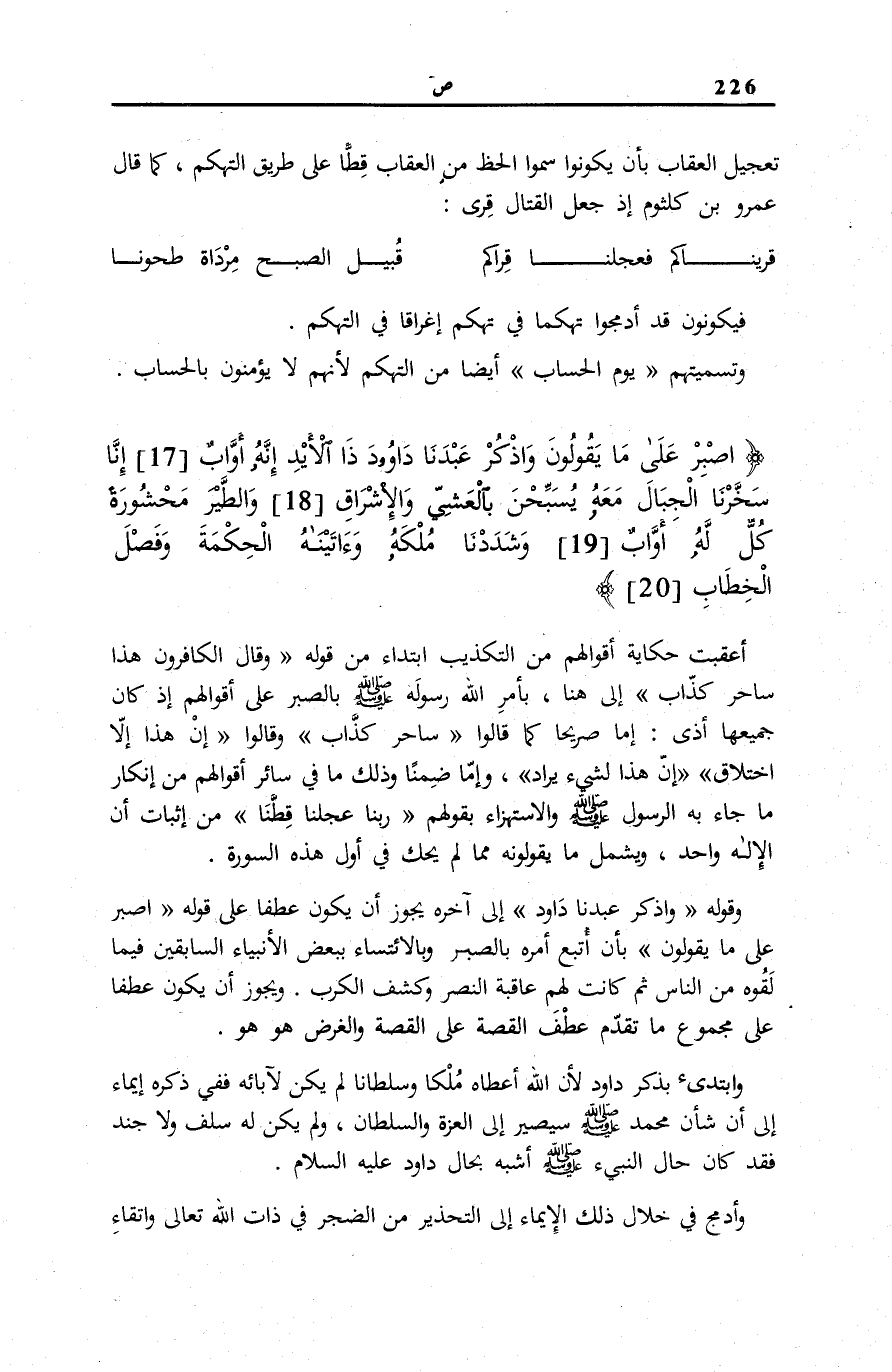 226
ص
تعجيل العقاب بأن يكونوا سموا الحظ من العقاب قِطًّا على طريق التهكم ، كما قال
عمرو بن كلثوم إذ جعل القتال قِرى :
قرينـــاكم فعجلنـــا قِراكم قُبيـــل الصبـــح مِرْدَاة طحونـــا
فيكونون قد أدمجوا تهكما في تهكم إغراقا في التهكم .
وتسميتهم « يوم الحساب » أيضا من التهكم لأنهم لا يؤمنون بالحساب .
﴿ اصْبِرْ عَلَىٰ مَا يَقُولُونَ وَاذْكُرْ عَبْدَنَا دَاوُۥدَ ذَا ٱلْأَيْدِ إِنَّهُۥ أَوَّابٌ [17] إِنَّا
سَخَّرْنَا الْجِبَالَ مَعَهُۥ يُسَبِّحْنَ بِٱلْعَشِيِّ وَالْإِشْرَاقِ [18] وَالطَّيْرَ مَحْشُورَةً
كُلٌّ لَّهُۥ أَوَّابٌ [19] وَشَدَدْنَا مُلْكَهُۥ وَءَاتَيْنَـٰهُ الْحِكْمَةَ وَفَصْلَ
الْخِطَابِ [20] ﴾
أعقبت حكاية أقوالهم من التكذيب ابتداء من قوله « وقال الكافرون هذا
ساحر كذّاب » إلى هنا ، بأمرِ الله رسولَه ﷺ بالصبر على أقوالهم إذ كان
جميعها أذى : إما صريحا كما قالوا « ساحر كذَّاب » وقالوا « إنْ هذا إلّا
اختلاق» «إنّ هذا لشيء يراد» ، وإمّا ضِمنًا وذلك ما في سائر أقوالهم من إنكار
ما جاء به الرسول ﷺ والاستهزاء بقولهم « ربنا عجلنا قِطَّنَا » من إثبات أن
الإلـٰه واحد ، ويشمل ما يقولونه مما لم يحك في أول هذه السورة .
وقوله « واذكر عبدنا دَاود » إلى آخره يجوز أن يكون عطفا على قوله « اصبر
على ما يقولون » بأن أُتبع أمره بالصبر وبالائتساء ببعض الأنبياء السابقين فيما
لَقُوه من الناس ثم كانت لهم عاقبة النصر وكشف الكرب . ويجوز أن يكون عطفا
على مجموع ما تقدّم عطْفَ القصة على القصة والغرض هو هو .
وابتدىء بذكر داود لأن الله أعطاه مُلْكا وسلطانا لم يكن لآبائه ففي ذكره إيماء
إلى أن شأن محمد ﷺ سيصير إلى العزة والسلطان ، ولم يكن له سلف ولا جند
فقد كان حال النبيء ﷺ أشبه بحال داود عليه السلام .
وأدمج في خلال ذلك الإيماء إلى التحذير من الضجر في ذات الله تعالى واتقاءِ